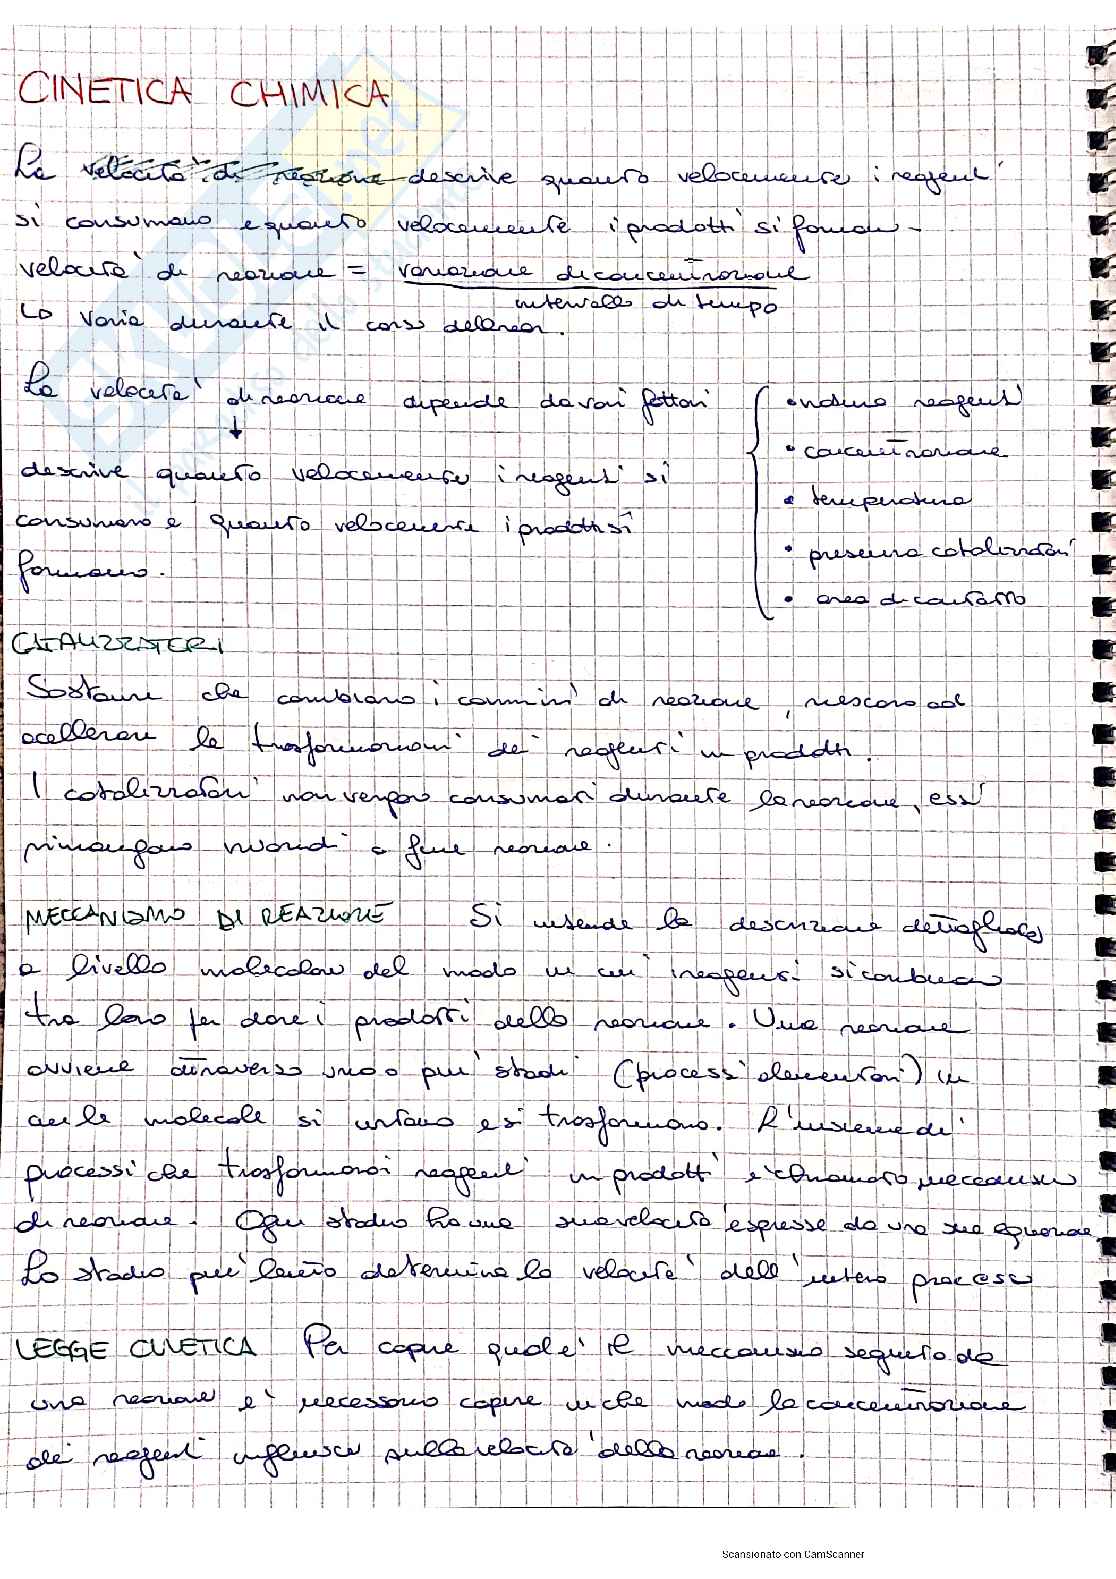 CINETICA CHIMICA
La velocità di reazione descrive quanto velocemente i reagenti
si consumano e quanto velocemente i prodotti si formano.
velocità di reazione = variazione di concentrazione
intervallo di tempo
↳ varia durante il corso della reaz.
La velocità di reazione dipende da vari fattori
• natura reagenti
• concentrazione
• temperatura
• presenza catalizzatori
• area di contatto
↓
descrive quanto velocemente i reagenti si
consumano e quanto velocemente i prodotti si
formano.
CATALIZZATORI
Sostanze che cambiano i cammini di reazione, riescono ad
accellerare la trasformazioni dei reagenti in prodotti.
I catalizzatori non vengono consumati durante la reazione, essi
rimangono invariati a fine reazione.
MECCANISMO DI REAZIONE Si intende la descrizione dettagliata
a livello molecolare del modo in cui i reagenti si combinano
tra loro per dare i prodotti della reazione. Una reazione
avviene attraverso uno o più stadi (processi elementari) in
cui le molecole si urtano e si trasformano. L'insieme di
processi che trasformano i reagenti in prodotti è chiamato meccanismo
di reazione. Ogni stadio ha una sua velocità espressa da una sua equazione.
Lo stadio più lento determina la velocità dell'intero processo
LEGGE CINETICA Per capire qual è il meccanismo seguito da
una reazione è necessario capire in che modo la concentrazione
dei reagenti influisce sulla velocità della reazione.
Scansionato con CamScanner